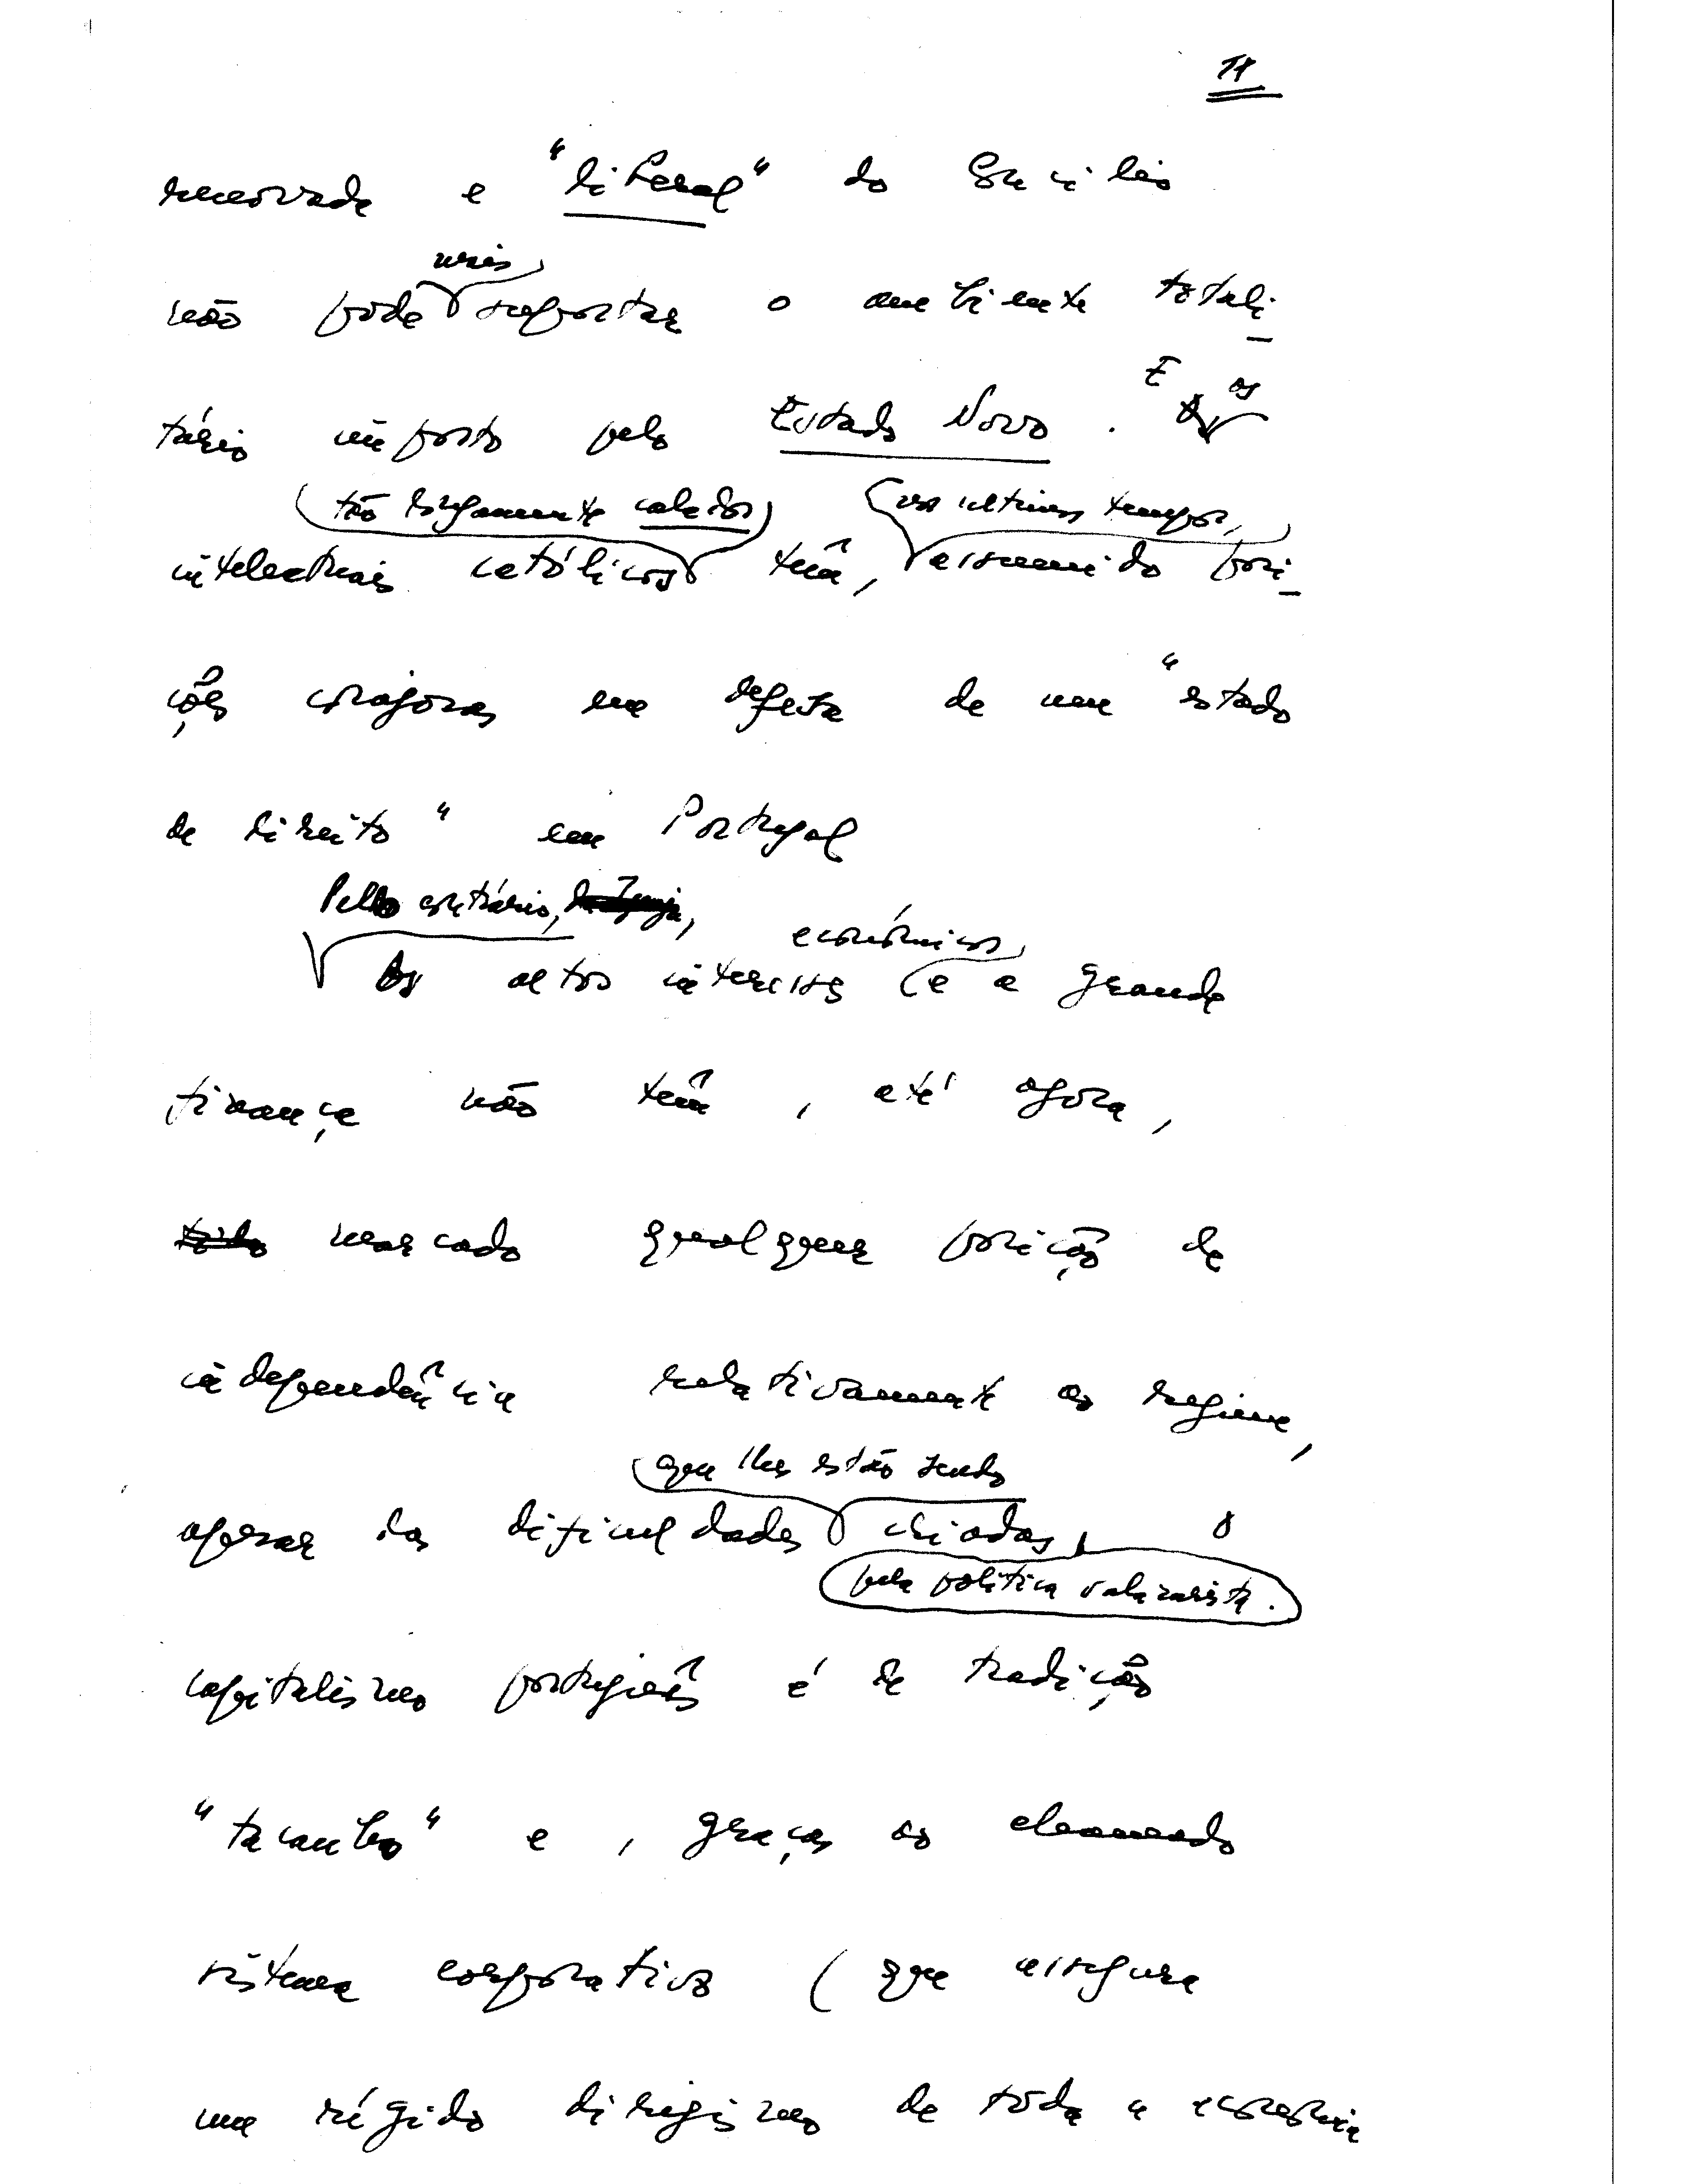 11
renovada e "liberal" do Concílio
mais
não pode suportar o ambiente totali-
tário imposto pelo Estado Novo. E os
(tão longamente calados) (nos ultimos tempos,
intelectuais católicos têm, assumido posi-
ções corajosas em defesa de um "estado
de direito" em Portugal
Pelo contrário,
económicos
os altos interesses (e a grande
finança não têm, até agora,
marcado qualquer posição de
independência relativamente ao regime,
que lhes estão sendo
apesar das dificuldades criadas, O
pela politica salazarista.
capitalismo português é de tradição
"tacanho" e, graças ao chamado
sistema corporativo (que assegura
um rígido dirigismo de tôda a economia